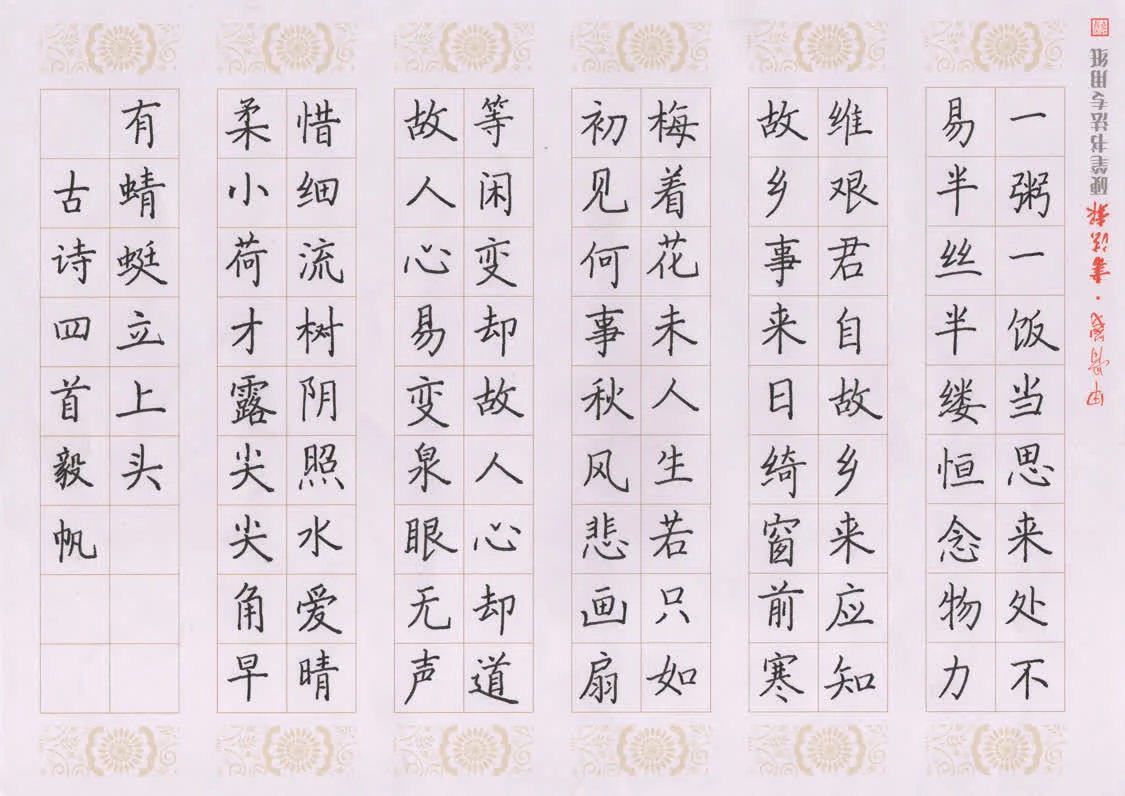 書法報 硬笔书法专用纸
一粥一饭当思来处不
易半丝半缕恒念物力
维艰君自故乡来应知
故乡事来日绮窗前寒
梅着花未人生若只如
初见何事秋风悲画扇
等闲变却故人心却道
故人心易变泉眼无声
惜细流树阴照水爱晴
柔小荷才露尖尖角早
有蜻蜓立上头
古诗四首毅帆